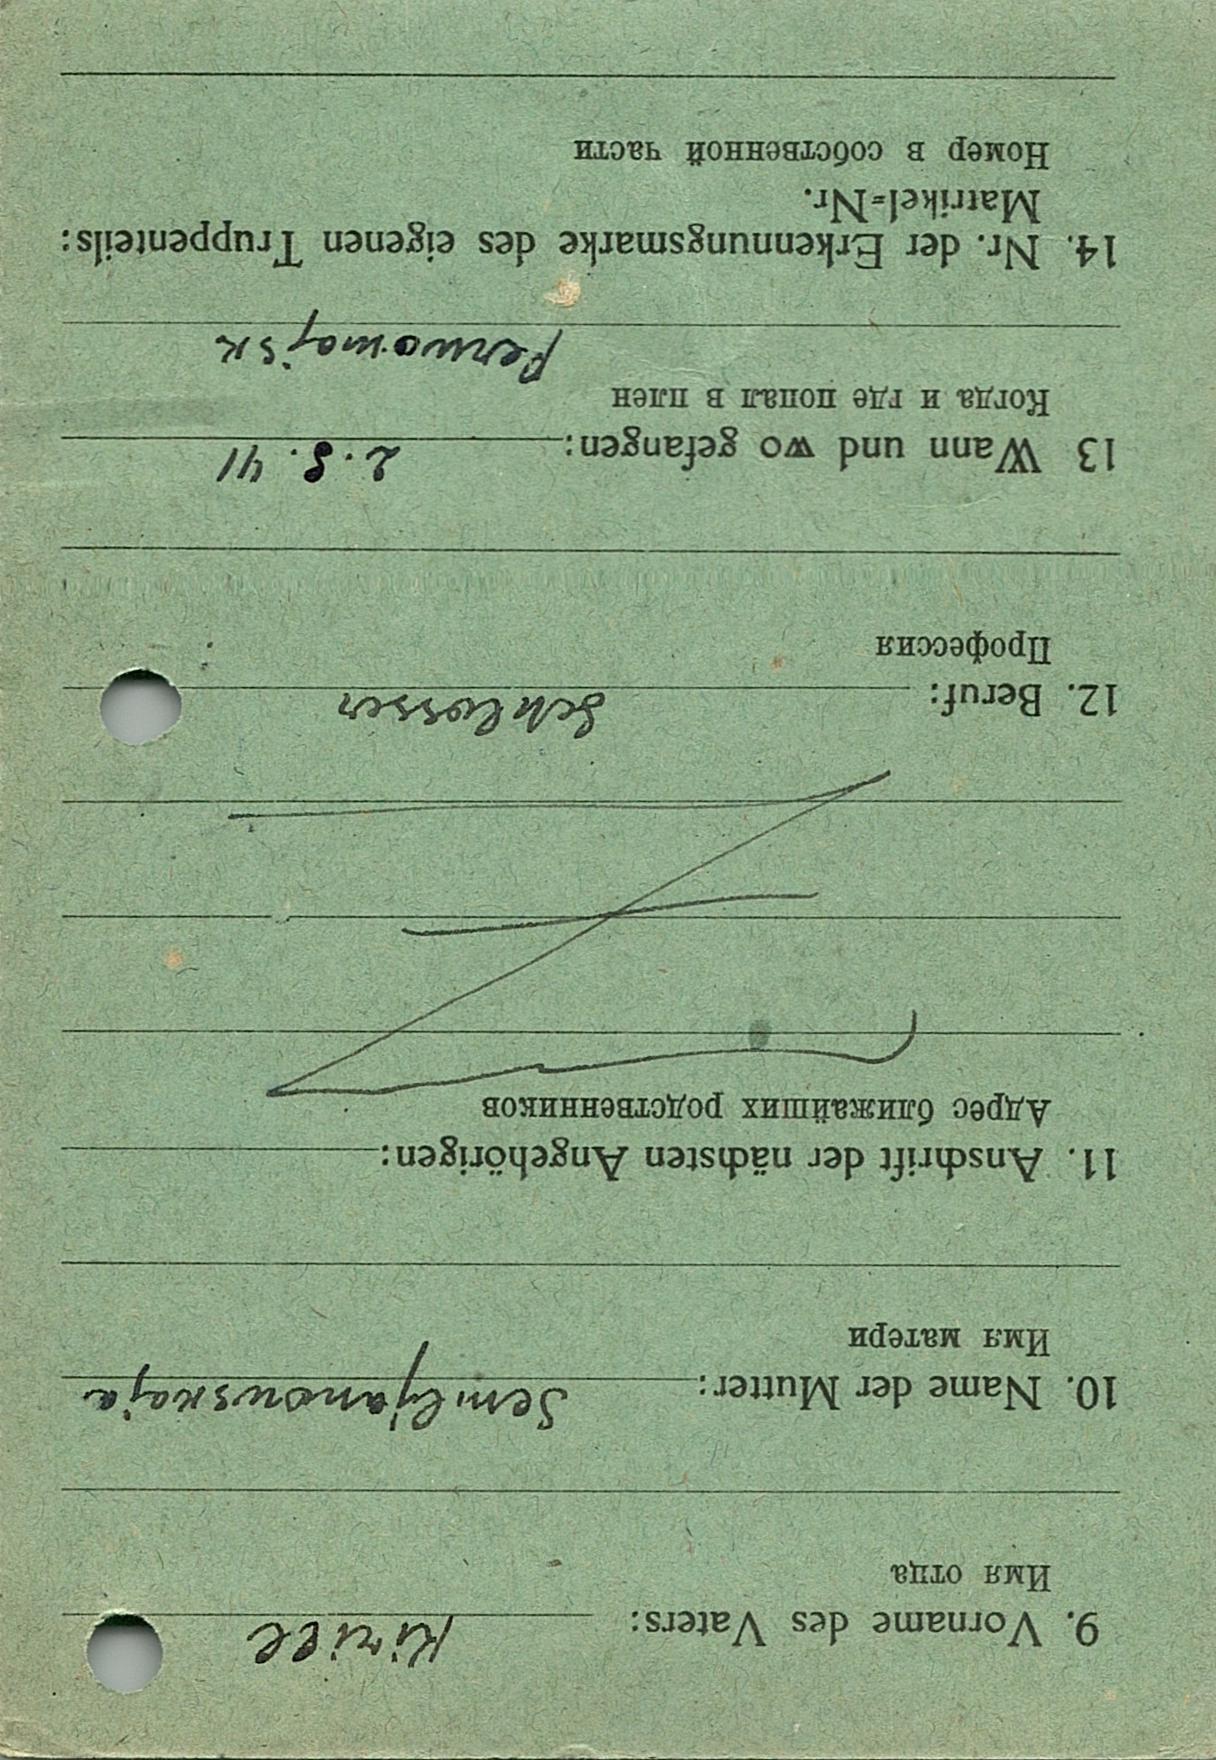 9. Vorname des Vaters: Kirill
Имя отца
10. Name der Mutter: Semljanowskaja
Имя матери
11. Anschrift der nächsten Angehörigen:
Адрес ближайших родственников
12. Beruf: Schlosser
Профессия
13 Wann und wo gefangen: 2. 8. 41
Когда и где попал в плен
Perwomajsk
14. Nr. der Erkennungsmarke des eigenen Truppenteils:
Matrikel=Nr.
Номер в собственной части